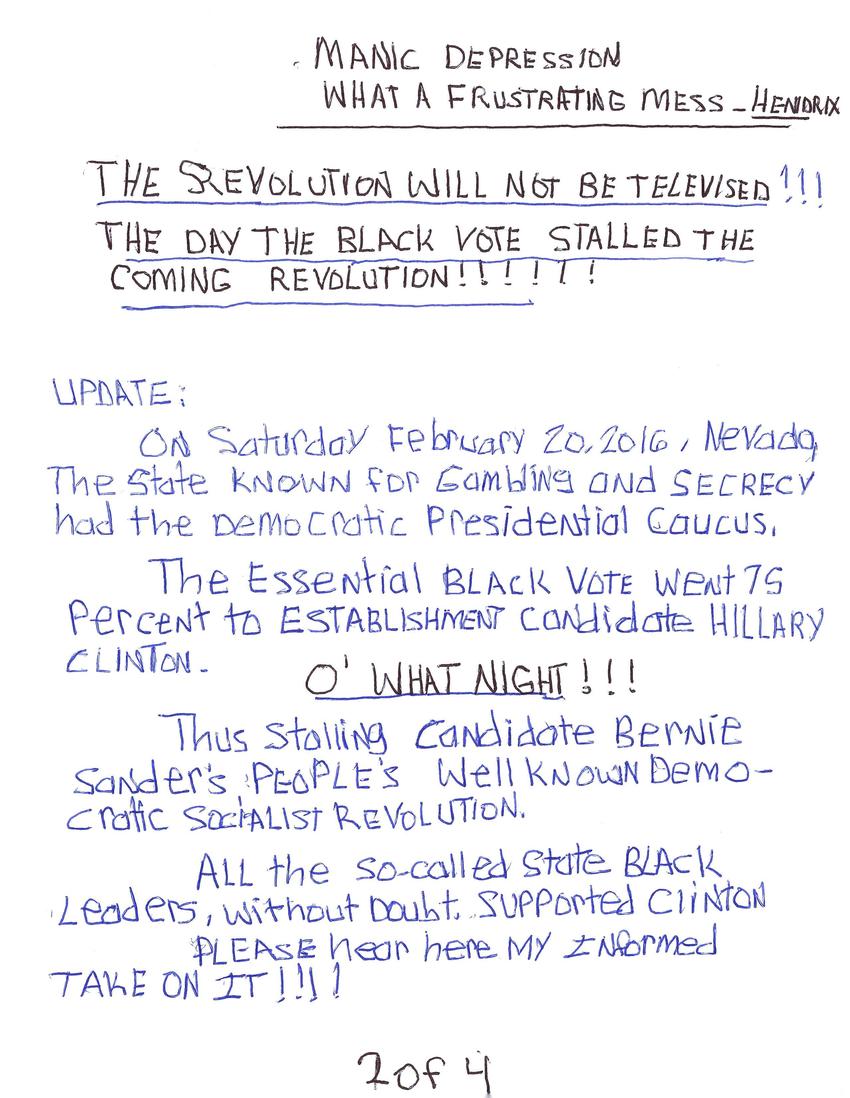 MANIC DEPRESSION
WHAT A FRUSTRATING MESS - HENDRIX
THE REVOLUTION WILL NOT BE TELEVISED!!!
THE DAY THE BLACK VOTE STALLED THE
COMING REVOLUTION!!!!!!!
UPDATE:
ON Saturday February 20, 2016, Nevada,
The State KNOWN for Gambling and SECRECY
had the Democratic Presidential Caucus.
The Essential BLACK VOTE WENT 75
Percent to ESTABLISHMENT Candidate HILLARY
CLINTON.
O' WHAT NIGHT!!!
Thus Stalling Candidate BERNIE
Sander's PEOPLE'S Well KNOWN Demo-
cratic SOCIALIST REVOLUTION.
ALL the so-called State BLACK
Leaders, without Doubt. SUPPORTED CLINTON
PLEASE hear here MY INformed
TAKE ON IT!!!!
2 of 4